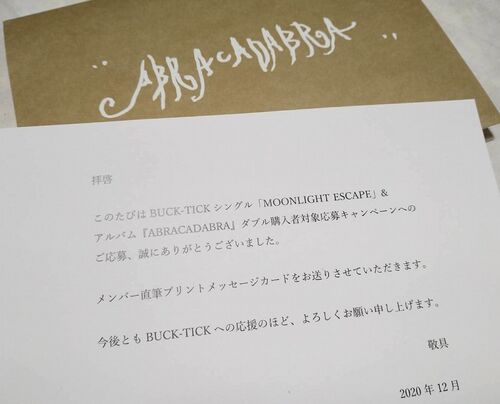 "ABRACADABRA"
拝啓
このたびは BUCK-TICK シングル「MOONLIGHT ESCAPE」&
アルバム『ABRACADABRA』ダブル購入者対象応募キャンペーンへの
ご応募、誠にありがとうございました。
メンバー直筆プリントメッセージカードをお送りさせていただきます。
今後とも BUCK-TICK への応援のほど、よろしくお願い申し上げます。
敬具
2020 年 12 月